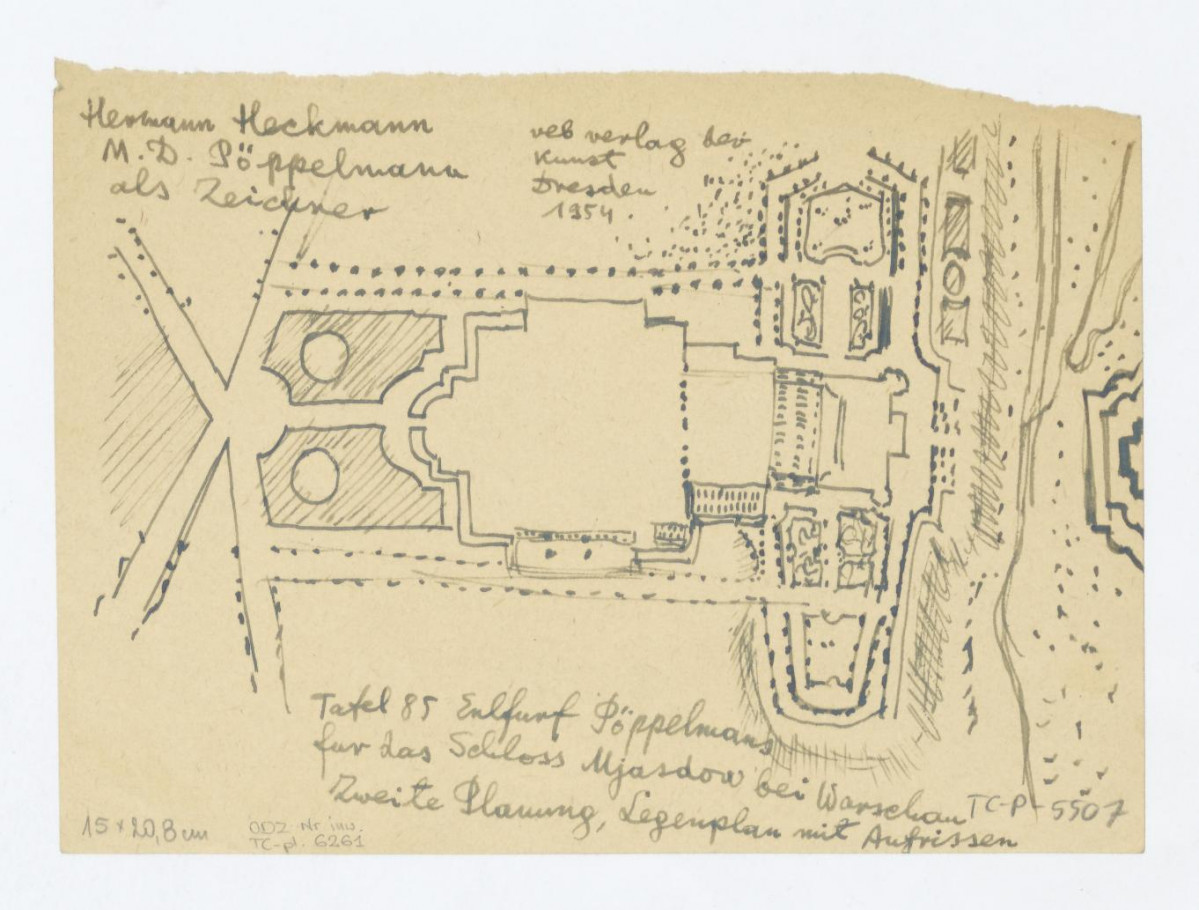 Hermann Heckmann
M. D. Pöppelmann
als Zeichner
veb verlag der
Kunst
Dresden
1954.
Tafel 85 Enlfurf Pöppelmans
fur das Schloss Mjasdow bei Warschau
Zweite Planung, Legenplan mit Aufrissen
TC-P-5507
15 x 20,8 cm
ODZ Nr inw.
TC-pl. 6261